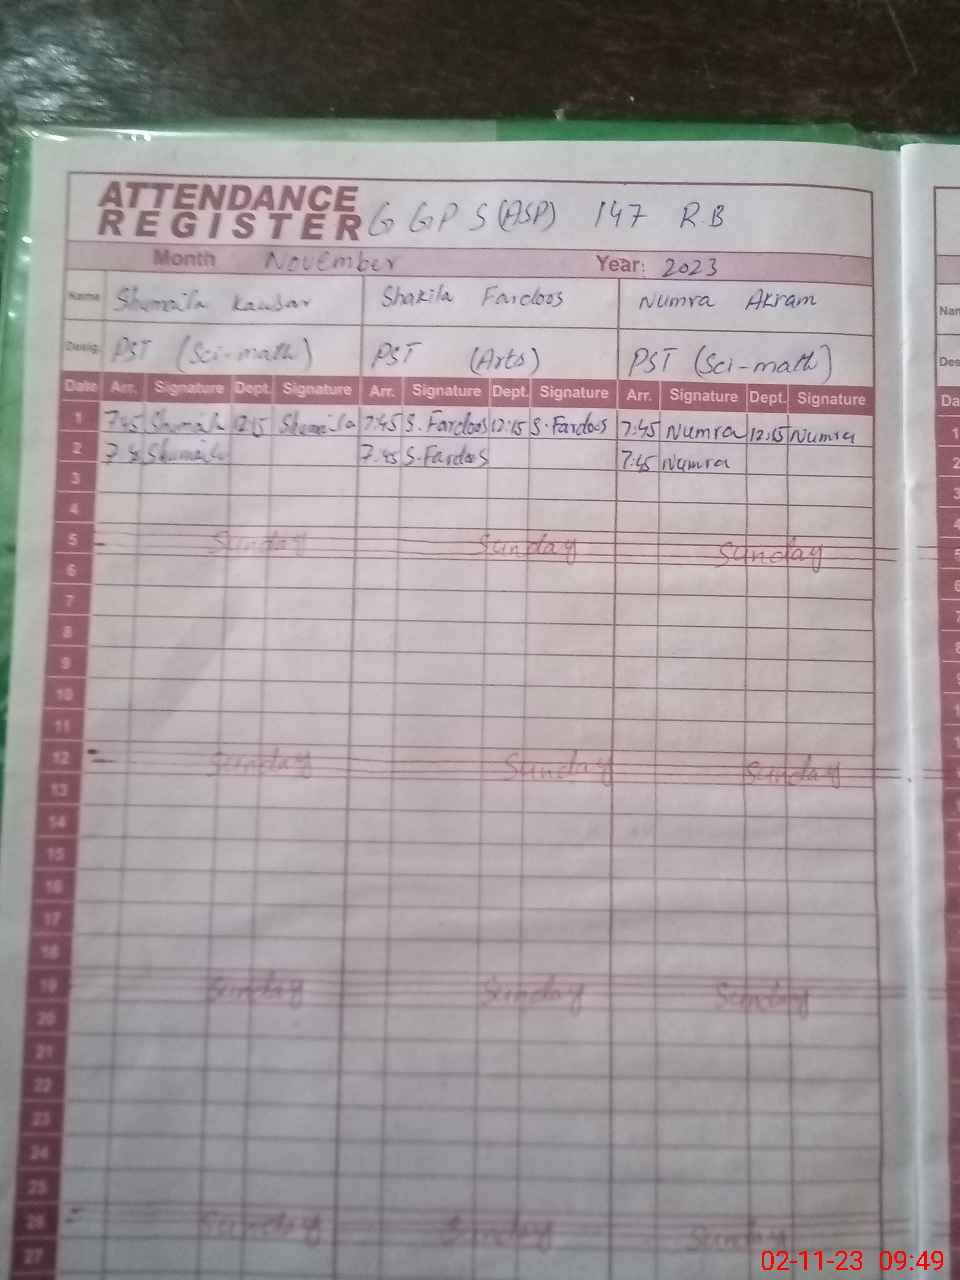 ATTENDANCE
REGISTER G G P S (ASP) 147 R.B
Month November Year: 2023
Name Shumaila Kausar Shakila Fardoos Numra Akram
Desig. PST (Sci-math) PST (Arts) PST (Sci-math)
Date Arr. Signature Dept. Signature Arr. Signature Dept. Signature Arr. Signature Dept. Signature
1 7:45 Shumaila 12:15 Shumaila 7:45 S. Fardoos 12:15 S. Fardoos 7:45 Numra 12:15 Numra
2 7:45 Shumaila 7:45 S. Fardoos 7:45 Numra
3
4
5 Sunday Sunday Sunday
6
7
8
9
10
11
12 Sunday Sunday Sunday
13
14
15
16
17
18
19 Sunday Sunday Sunday
20
21
22
23
24
25
26 Sunday Sunday Sunday
27
02-11-23 09:49